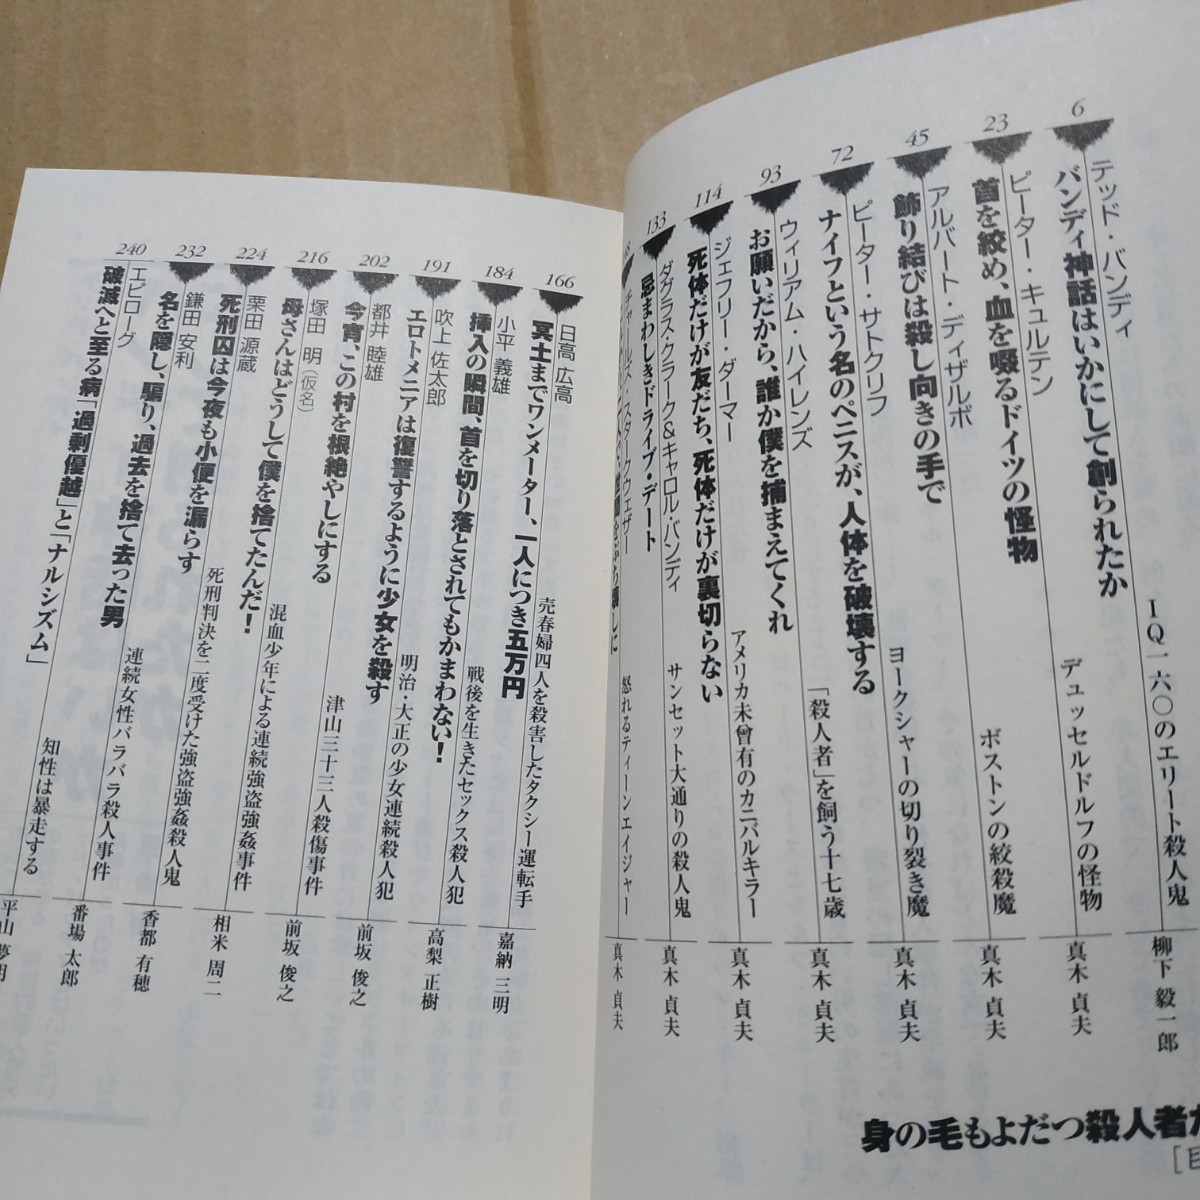 身の毛もよだつ殺人者
6
テッド・バンディ
バンディ神話はいかにして創られたか
IQ一六〇のエリート殺人鬼
柳下 毅一郎
23
ピーター・キュルテン
首を絞め、血を啜るドイツの怪物
デュッセルドルフの怪物
真木 貞夫
45
アルバート・ディザルボ
飾り結びは殺し向きの手で
ボストンの絞殺魔
真木 貞夫
72
ピーター・サトクリフ
ナイフという名のペニスが、人体を破壊する
ヨークシャーの切り裂き魔
真木 貞夫
93
ウィリアム・ハイレンズ
お願いだから、誰か僕を捕まえてくれ
「殺人者」を飼う十七歳
真木 貞夫
114
ジェフリー・ダーマー
死体だけが友だち、死体だけが裏切らない
アメリカ未曾有のカニバルキラー
真木 貞夫
133
ダグラス・クラーク&キャロル・バンディ
忌まわしきドライブ・デート
サンセット大通りの殺人鬼
真木 貞夫
チャールズ・スタークウェザー
怒れるティーンエイジャー
真木 貞夫
166
日高 広高
冥土までワンメーター、一人につき五万円
売春婦四人を殺害したタクシー運転手
嘉納 三明
184
小平 義雄
挿入の瞬間、首を切り落とされてもかまわない!
戦後を生きたセックス殺人犯
高梨 正樹
191
吹上 佐太郎
エロトメニアは復讐するように少女を殺す
明治・大正の少女連続殺人犯
前坂 俊之
202
都井 睦雄
今宵、この村を根絶やしにする
津山三十三人殺傷事件
前坂 俊之
216
塚田 明(仮名)
母さんはどうして僕を捨てたんだ!
混血少年による連続強盗強姦事件
相米 周二
224
栗田 源蔵
死刑囚は今夜も小便を漏らす
死刑判決を二度受けた強盗強姦殺人鬼
香都 有穂
232
鎌田 安利
名を隠し、騙り、過去を捨て去った男
連続女性バラバラ殺人事件
番場 太郎
240
エピローグ
破滅へと至る病「過剰優越」と「ナルシズム」
知性は暴走する
平山 夢明